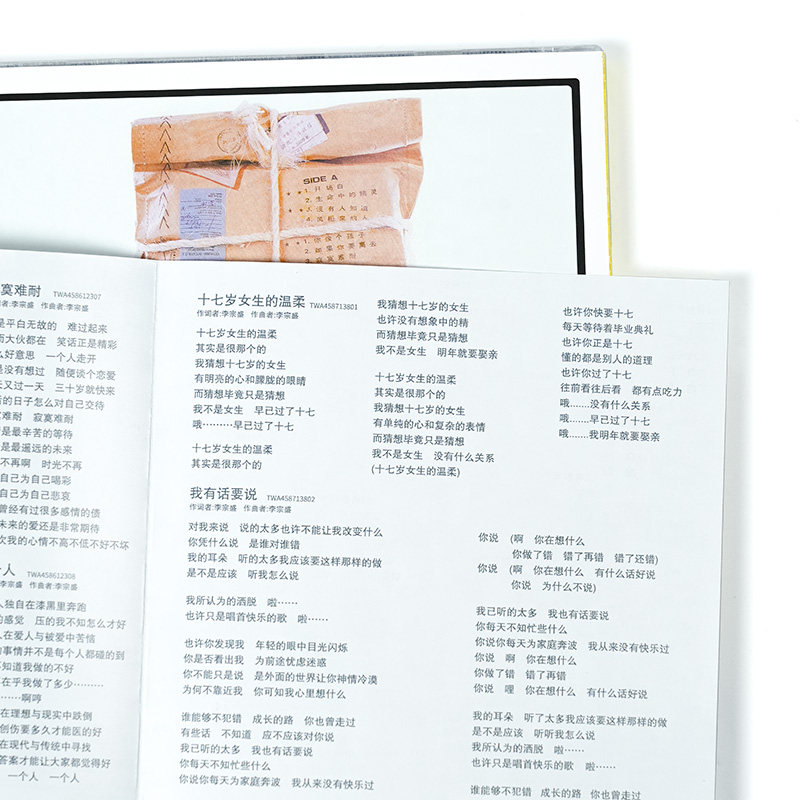 SIDE A
1. 开场白
2. 生命中的精灵
3. 没有人知道
4.
1. 你像个孩子
2. 如果你要离去
3. 寂寞难耐
寞难耐 TWA458612307
者:李宗盛 作曲者:李宗盛
是平白无故的 难过起来
而大伙都在 笑话正是精彩
么好意思 一个人走开
是没有想过 随便谈个恋爱
天又过一天 三十岁就快来
的日子怎么对自己交待
难耐 寂寞难耐
是最辛苦的等待
是最遥远的未来
不再啊 时光不再
自己为自己喝彩
自己为自己悲哀
曾经有过很多感情的债
未来的爱还是非常期待
次我的心情不高不低不好不坏
个人 TWA458612308
者:李宗盛 作曲者:李宗盛
人独自在漆黑里奔跑
的感觉 压的我不知怎么才好
人在爱人与被爱中苦恼
的事情并不是每个人都碰的到
不知道我做的不好
在乎我做了多少………
………啊哼
在理想与现实中跌倒
创伤要多久才能医的好
在现代与传统中寻找
答案才能让大家都觉得好
一个人 一个人
十七岁女生的温柔 TWA458713801
作词者:李宗盛 作曲者:李宗盛
十七岁女生的温柔
其实是很那个的
我猜想十七岁的女生
有明亮的心和朦胧的眼睛
而猜想毕竟只是猜想
我不是女生 早已过了十七
哦………早已过了十七
十七岁女生的温柔
其实是很那个的
我猜想十七岁的女生
也许没有想象中的精
而猜想毕竟只是猜想
我不是女生 明年就要娶亲
十七岁女生的温柔
其实是很那个的
我猜想十七岁的女生
有单纯的心和复杂的表情
而猜想毕竟只是猜想
我不是女生 没有什么关系
(十七岁女生的温柔)
也许你快要十七
每天等待着毕业典礼
也许你正是十七
懂的都是别人的道理
也许你过了十七
往前看往后看 都有点吃力
哦.......没有什么关系
哦.......早已过了十七
哦.......我明年就要娶亲
我有话要说 TWA458713802
作词者:李宗盛 作曲者:李宗盛
对我来说 说的太多也许不能让我改变什么
你凭什么说 是谁对谁错
我的耳朵 听的太多我应该要这样那样的做
是不是应该 听我怎么说
我所认为的洒脱 啦……
也许只是唱首快乐的歌 啦……
也许你发现我 年轻的眼中目光闪烁
你是否看出我 为前途忧虑迷惑
你不能只是说 是外面的世界让你神情冷漠
为何不靠近我 你可知我心里想什么
谁能够不犯错 成长的路 你也曾走过
有些话 不知道 应不应该对你说
我已听的太多 我也有话要说
你每天不知忙些什么
你说你每天为家庭奔波 我从来没有快乐过
你说 (啊 你在想什么
你做了错 错了再错 错了还错)
你说 (啊 你在想什么 有什么话好说
你说 为什么不说)
我已听的太多 我也有话要说
你每天不知忙些什么
你说你每天为家庭奔波 我从来没有快乐过
你说 啊 你在想什么
你做了错 错了再错
你说 哩 你在想什么 有什么话好说
我的耳朵 听了太多我应该要这样那样的做
是不是应该 听听我怎么说
我所认为的洒脱 啦……
也许只是唱首快乐的歌 啦……
谁能够不犯错 成长的路 你也曾走过